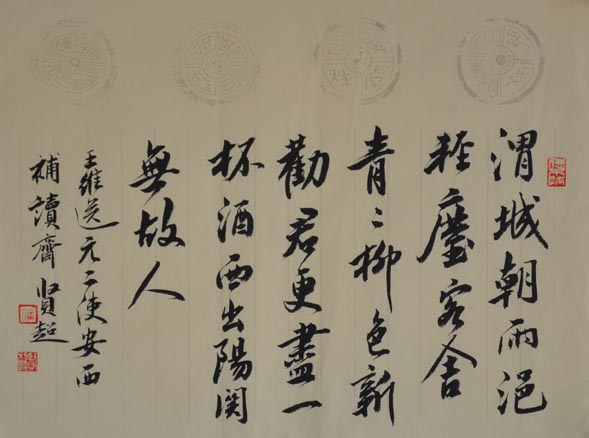 渭城朝雨浥
輕塵客舍
青〻柳色新
勸君更盡一
杯酒西出陽関
無故人
王維送元二使安西
補讀齋賢超